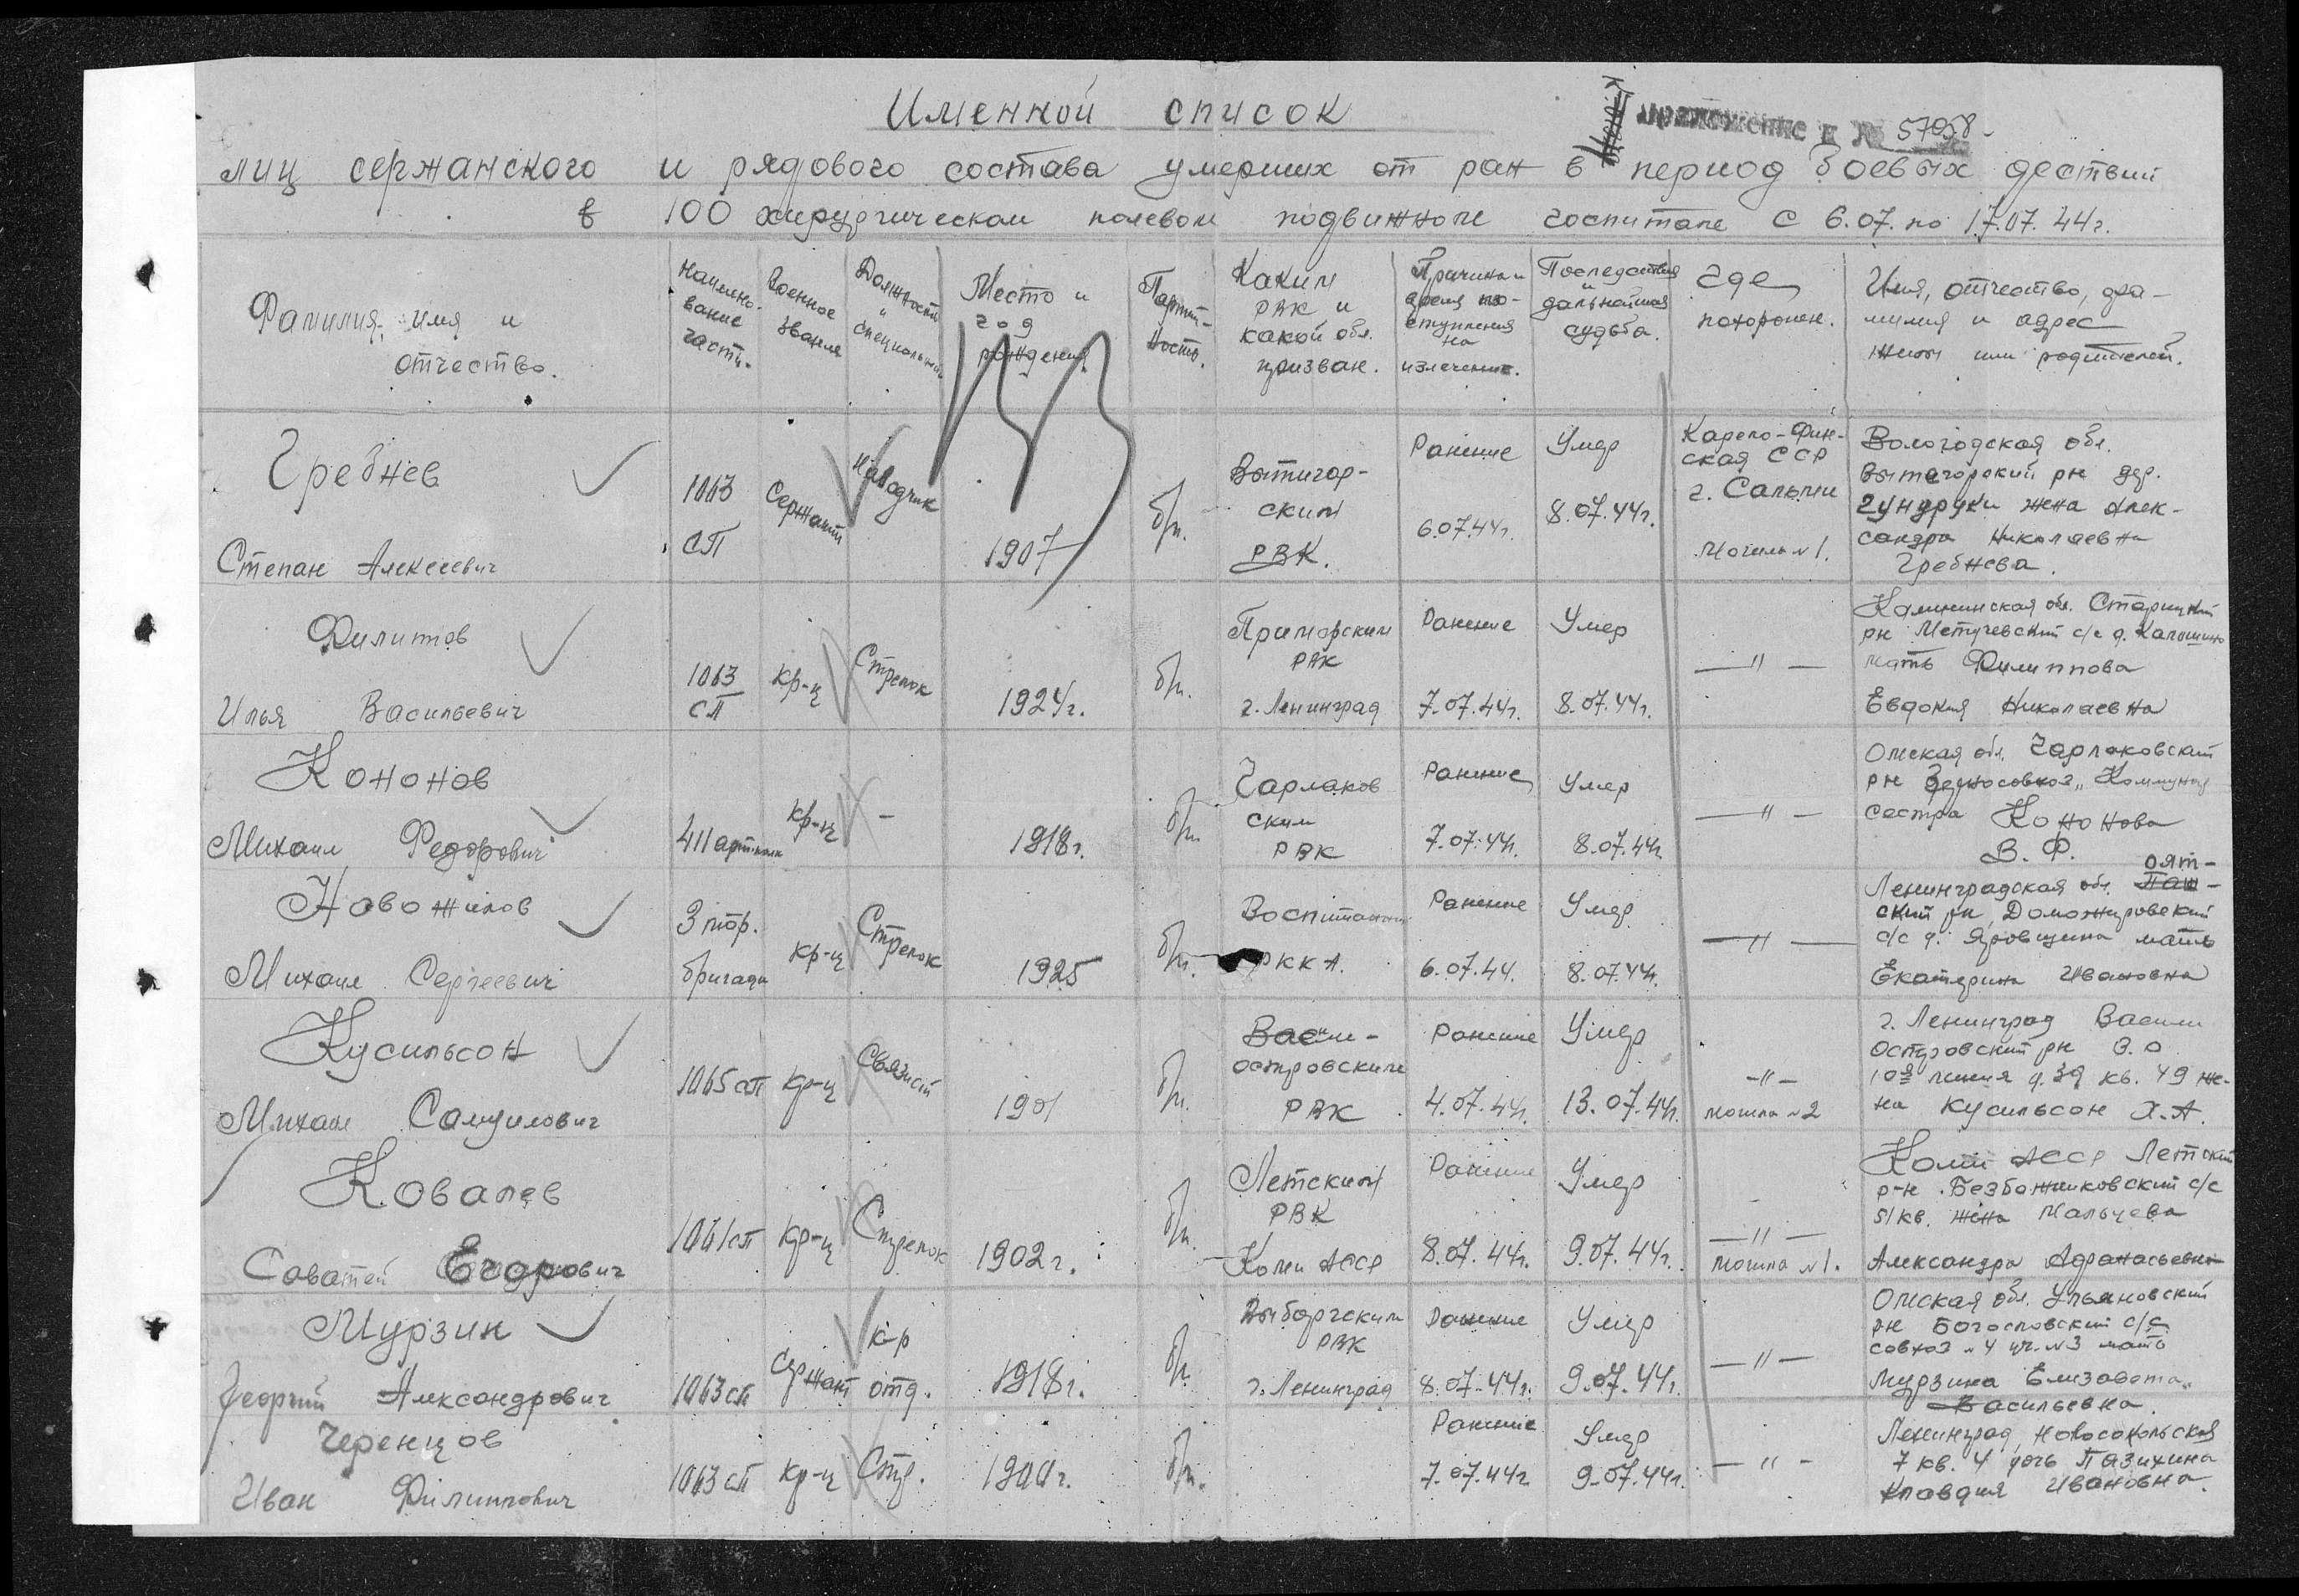 Именной список
приложение к № 57058
лиц сержанского и рядового состава умерших от ран в период боевых дествий
в 100 хирургическом полевом подвижном госпитале с 6.07. по 17.07.44г.
Фамилия, имя и отчество.
Наимено-
вание
части.
Военное
звание
Должность
и
специальность
Место и
год
рождения
Партий-
ность.
Каким
РВК и
какой обл.
призван.
Причина и
время по-
ступления
на
излечение.
Последствия
и
дальнейшая
судьба.
где
похоронен.
Имя, отчество, фа-
милия и адрес
жены или родителей.
Гребнев
Степан Алексеевич
1063
СП
Сержант
Наводчик
1907
б/п.
Вытигор-
ским
РВК.
Ранение
6.07.44г.
Умер
8.07.44г.
Карело-Фин-
ская ССР
г. Сальми
Могила №1.
Вологодская обл.
Вытегорский рн дер.
Гундруки жена Алек-
сандра Николаевна
Гребнева.
Филипов
Илья Васильевич
1063
СП
кр-ц
Стрелок
1924г.
б/п.
Приморским
РВК
г. Ленинград
Ранение
7.07.44г.
Умер
8.07.44г.
—"—
Калининская обл. Старицкий
рн с/с д.
мать Филиппова
Евдокия Николаевна
Кононов
Михаил Федорович
411 артполк
кр-ц
-
1918г.
б/п.
Чарлаков
ским
РВК
Ранение
7.07.44г.
Умер
8.07.44г.
—"—
Омская обл. Чарлаковский
рн Зерносовхоз „Коммунар
сестра Кононова
В. Ф.
Новожилов
Михаил Сергеевич
3 тор.
бригада
кр-ц
Стрелок
1925
б/п.
Воспитанник
РККА.
Ранение
6.07.44.
Умер
8.07.44г.
—"—
оят-
Ленинградская обл. Паш-
ский рн, Доможировский
с/с д. Яровщина мать
Екатерина Ивановна
Кусильсон
Михаил Самуилович
1065 сп
кр-ц
Связист
1901
б/п.
Васил-
островским
РВК
Ранение
4.07.44г.
Умер
13.07.44г.
-"-
могила №2
г. Ленинград Васили
Островский рн В.О.
10я линия д. 39 кв. 49 же-
на Кусильсон Х.А.
Ковалев
Саватей Егорович
1061 сп
кр-ц
Стрелок
1902г.
б/п.
Летским
РВК
Коми АССР
Ранение
8.07.44г.
Умер
9.07.44г.
—"—
могила №1.
Коми АССР Летский
р-н Безбожниковский с/с
51 кв. жена Мальцева
Александра Афанасьевна
Мурзин
Георгий Александрович
1063 сп
Сержант
к-р
отд.
1918г.
б/п.
Выборгским
РВК
г. Ленинград
Ранение
8.07.44г.
Умер
9.07.44г.
—"—
Омская обл. Ульяновский
рн Богословский с/с
совхоз №4 уч. №3 мать
Мурзина Елизавета
Васильевна.
Черенцов
Иван Филиппович
1063 сп
кр-ц
Стр.
1900г.
б/п.
Ранение
7.07.44г
Умер
9.07.44г.
—"—
Ленинград, Новосокольская
7 кв. 4 дочь Пазихина
Клавдия Ивановна.